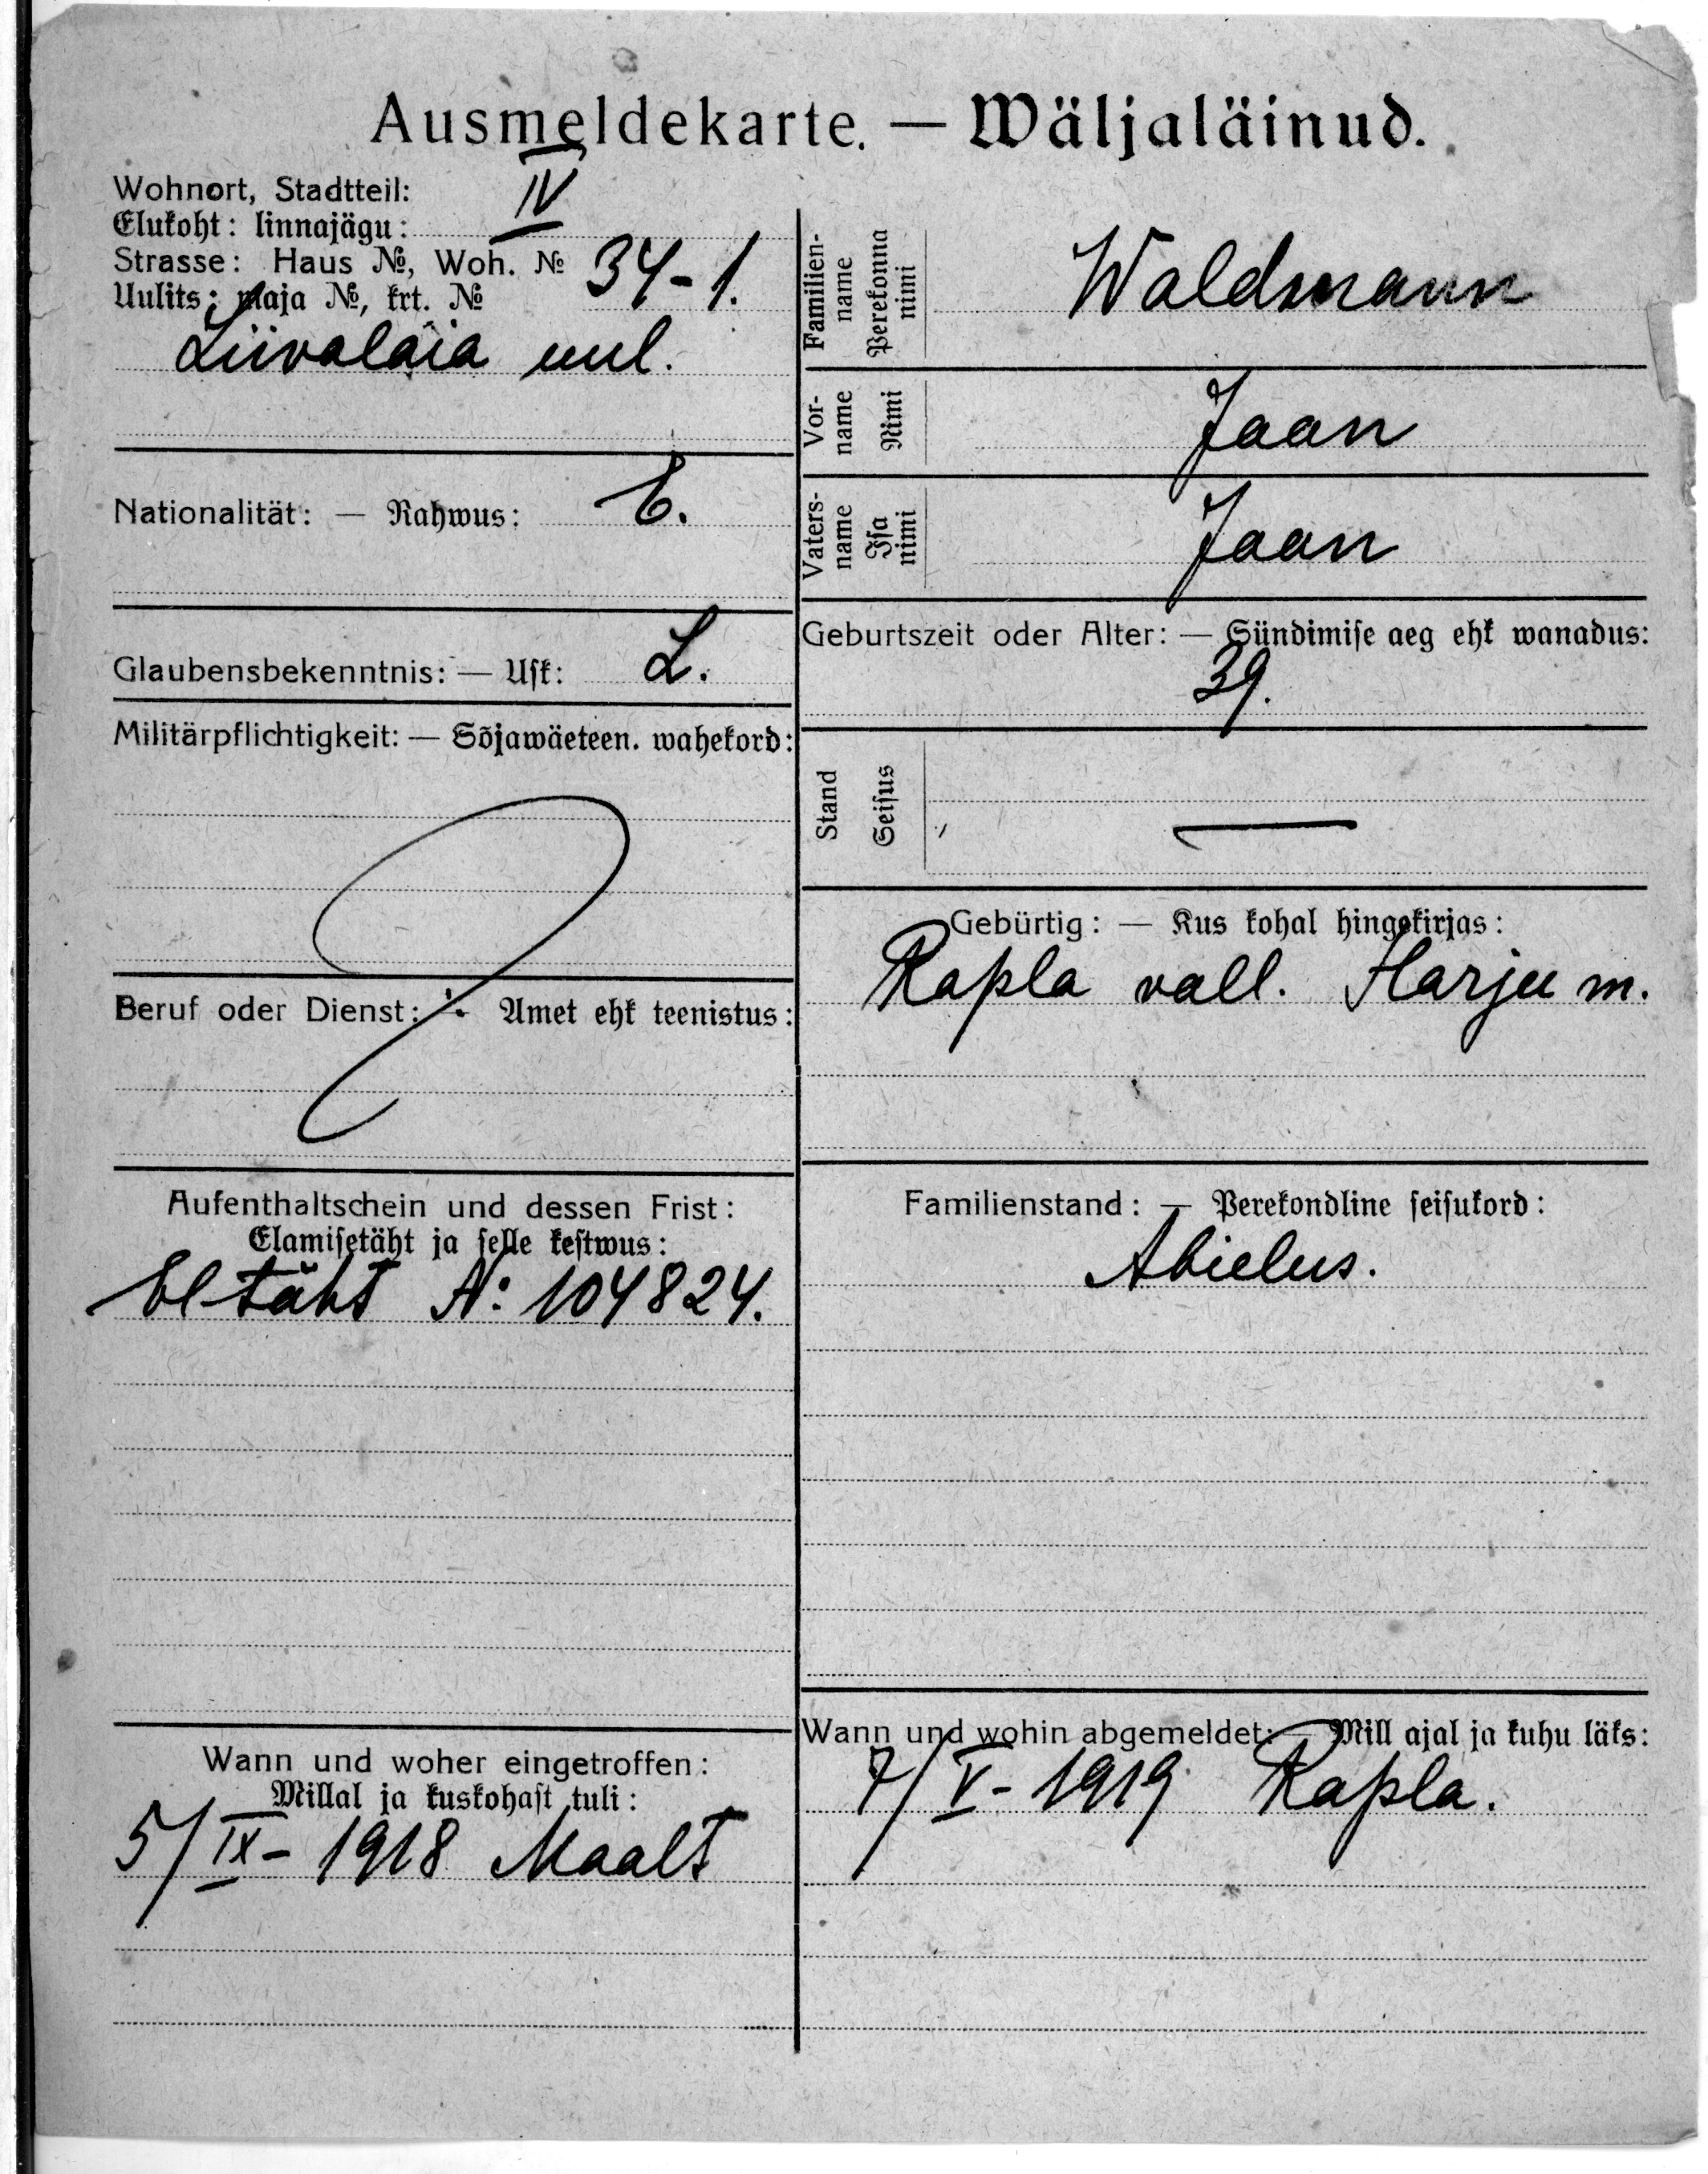 Ausmeldekarte. — Wäljaläinud.
Wohnort, Stadtteil:
Elukoht: linnajägu: IV
Strasse: Haus №, Woh. № 34-1.
Uulits: maja №, krt. №
Liivalaia uul.
Nationalität: — Rahwus: E.
Glaubensbekenntnis: — Usk: L.
Militärpflichtigkeit: — Sõjawäeteen. wahekord:
Beruf oder Dienst: — Amet ehk teenistus:
Aufenthaltschein und dessen Frist:
Elamisetäht ja selle kestwus:
El-täht №: 104824.
Wann und woher eingetroffen:
Millal ja kuskohast tuli:
5/IX- 1918 Maalt
Familien-
name
Perekonna
nimi
Waldmann
Vor-
name
Nimi
Jaan
Vaters-
name
Isa
nimi
Jaan
Geburtszeit oder Alter: — Sündimise aeg ehk wanadus:
39.
Stand
Seisus
—
Gebürtig: — Kus kohal hingekirjas:
Rapla vall. Harju m.
Familienstand: — Perekondline seisukord:
Abielus.
Wann und wohin abgemeldet: — Mill ajal ja kuhu läks:
7/V- 1919 Rapla.